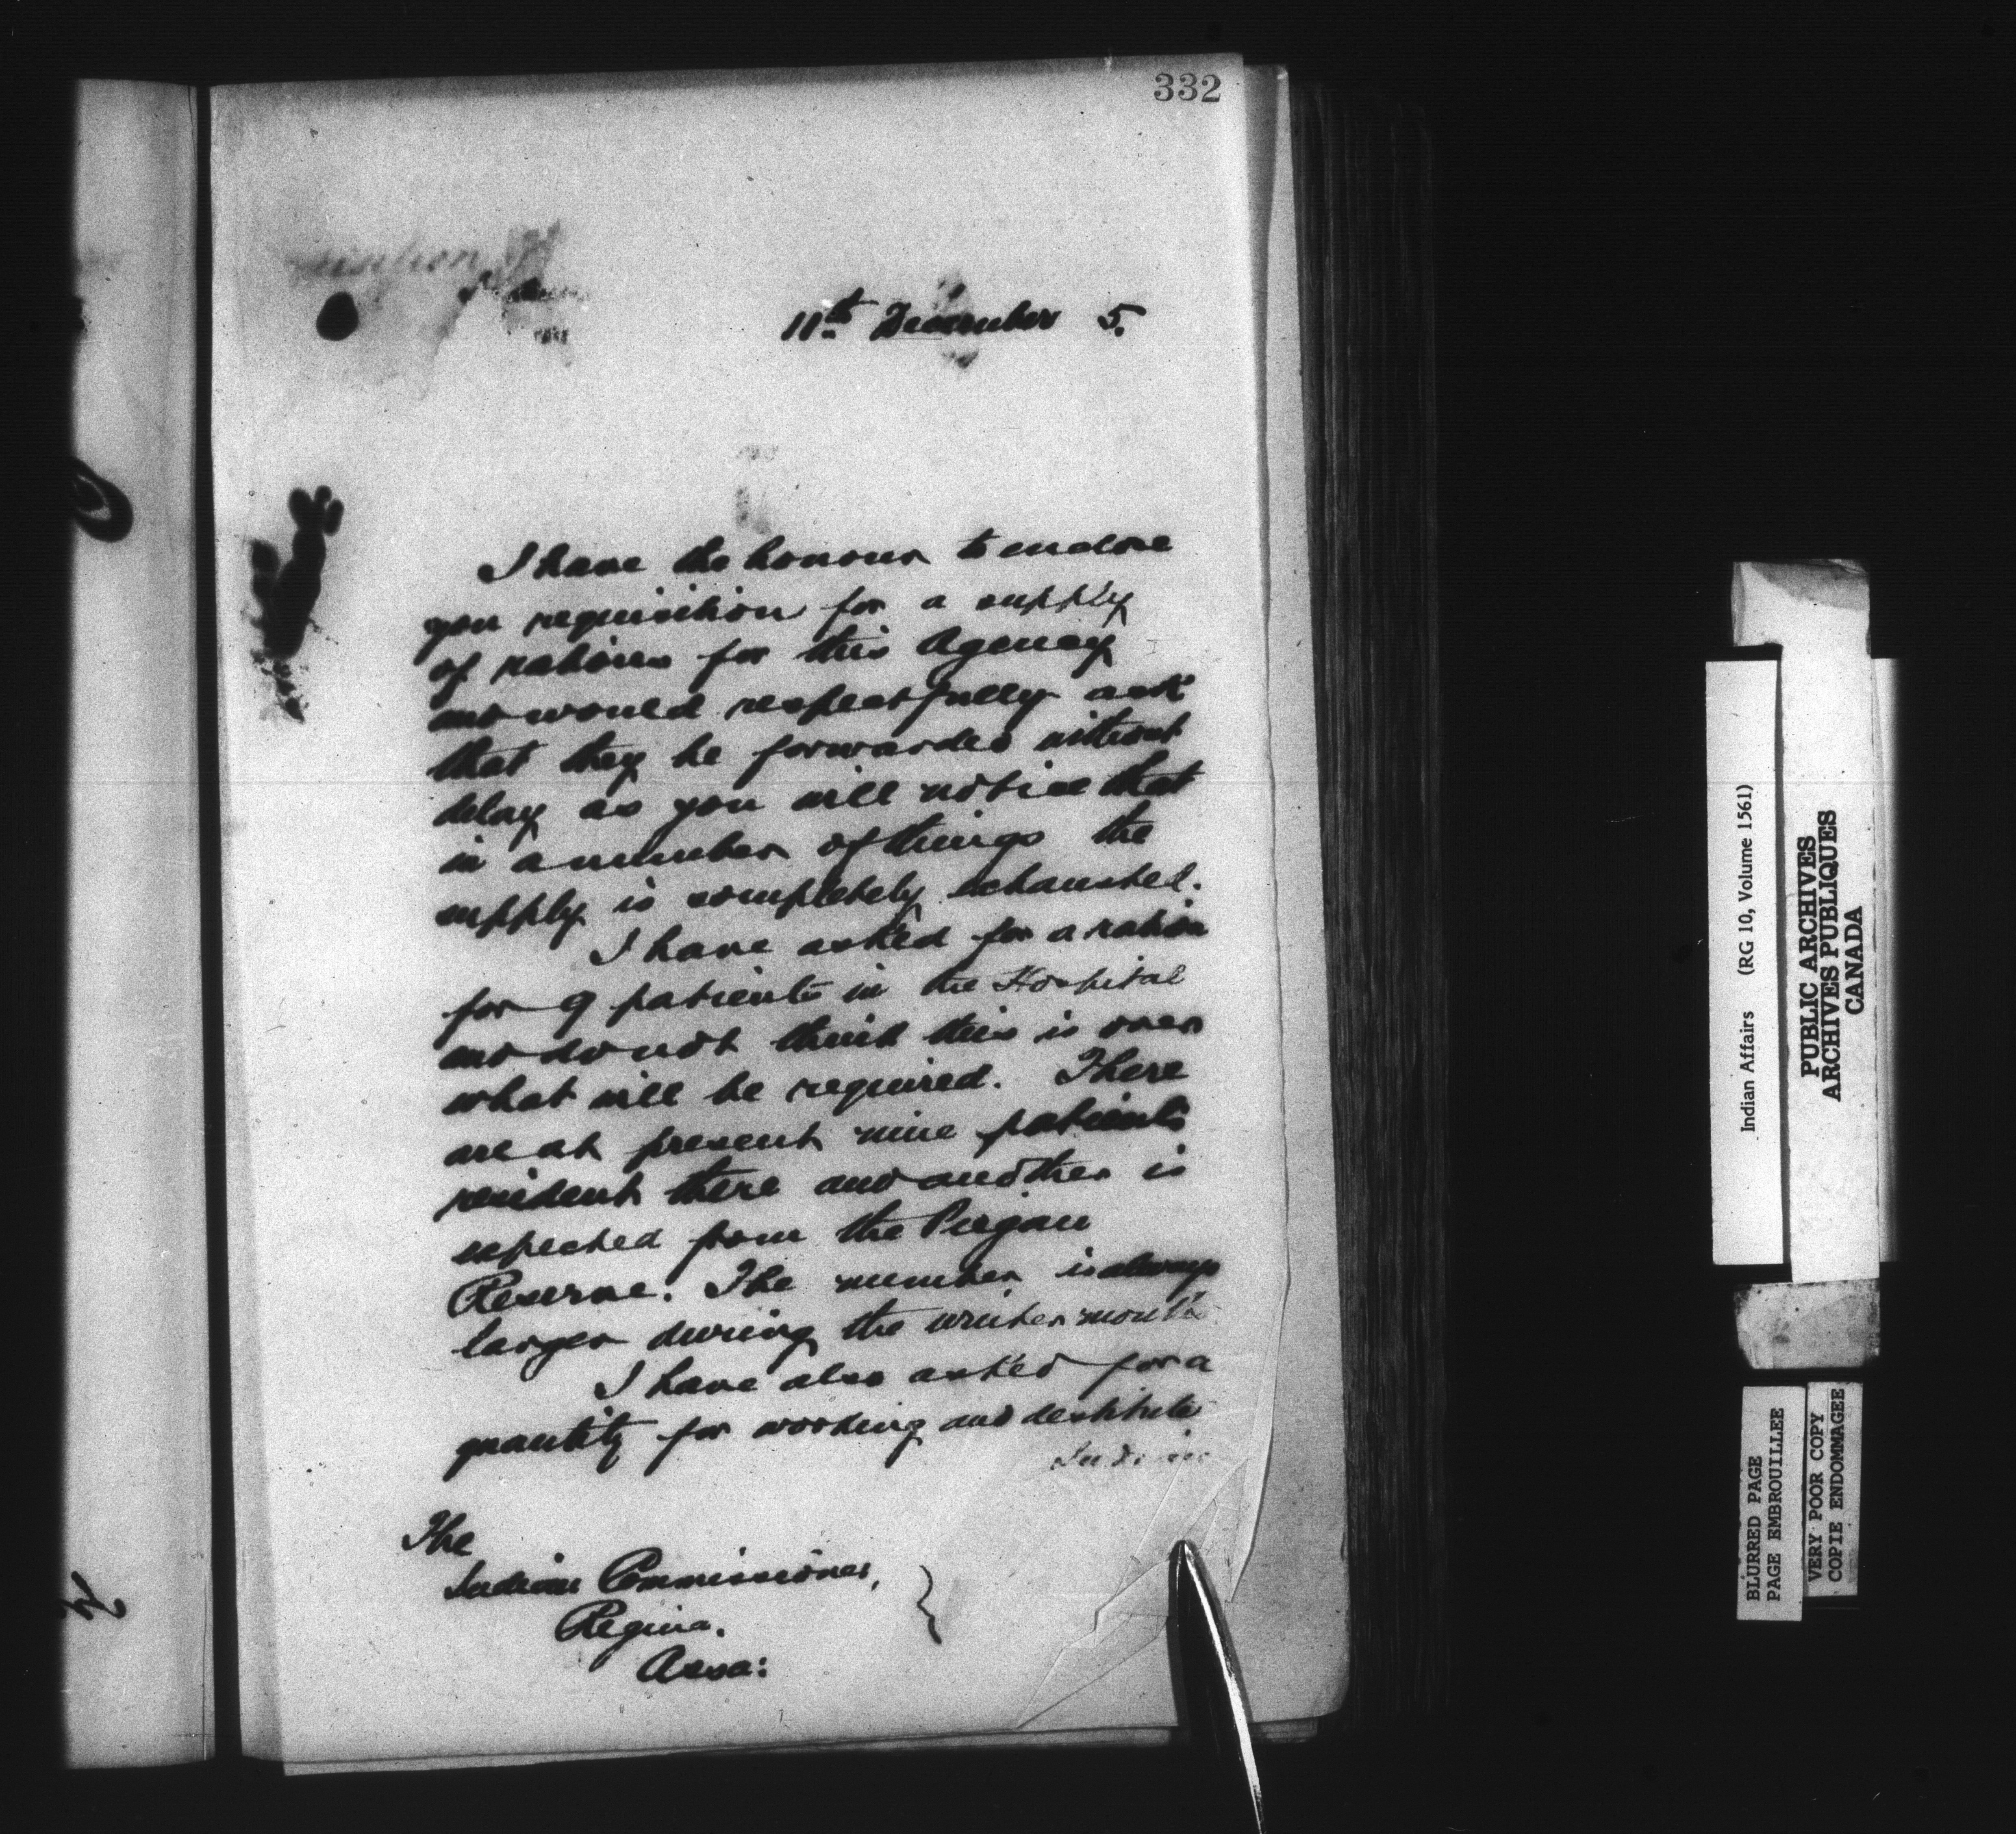 332
11th December 5.
I have the honour to enclose
you requisition for a supply
of rations for this Agency
and would respectfully ask
that they be forwarded without
delay as you will notice that
in a number of things the
supply is completely exhausted.
I have asked for a ration
for 9 patients in the Hospital
and do not think this is over
what will be required. There
are at present nine patients
resident there and another is
expected from the Piegan
Reserve. The number is always
larger during the winter months
I have also asked for a
quantity for working and destitute
Indians
The
Indian Commissioner,
Regina.
Assa:
Indian Affairs (RG 10, Volume 1561)
PUBLIC ARCHIVES
ARCHIVES PUBLIQUES
CANADA
BLURRED PAGE
PAGE EMBROUILLEE
VERY POOR COPY
COPIE ENDOMMAGEE